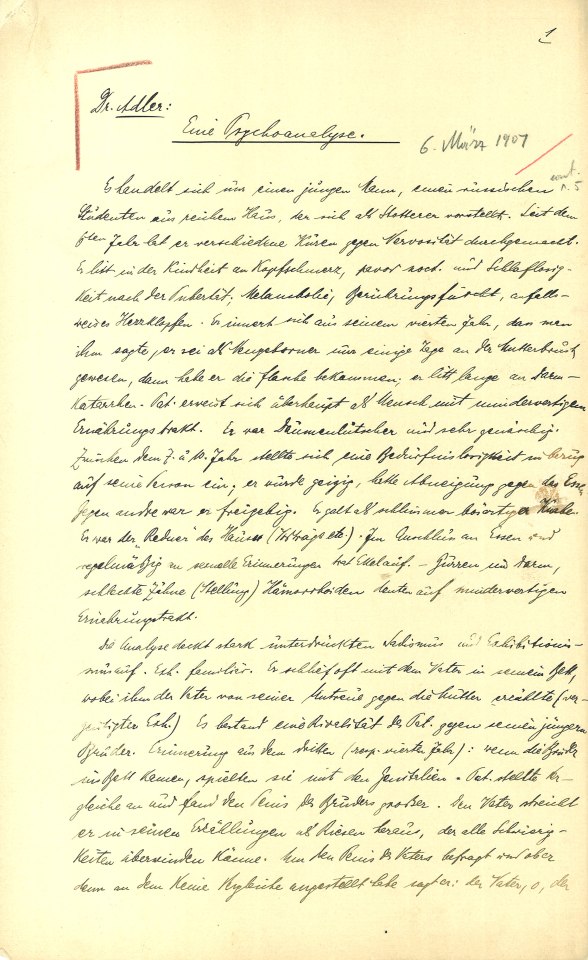 1
Dr. Adler:
Eine Psychoanalyse.
6. März 1907
cont. n. 5
Es handelt sich um einen jungen Mann, einen russischen
Studenten aus reichem Haus, der sich als Stotterer vorstellt. Seit dem
Jahr hat er verschiedene Kuren gegen Nervosität durchgemacht.
Er litt in der Kindheit an Kopfschmerz, pavor noct. und Schlaflosig-
keit nach der Pubertät; Melancholie, Berührungsfurcht, anfalls-
weises Herzklopfen. Er innert sich aus seinem vierten Jahr, dass man
ihm sagte, er sei als Neugeborner nur einige Tage an der Mutterbrust
gewesen, dann habe er die flasche bekommen; er litt lange an Darm-
katarrhen. Pat. erweist sich überhaupt als Mensch mit minderwertigem
Ernährungstrakt. Er war Daumenlutscher und sehr genäschig.
Zwischen dem 7. u 10. Jahr stellte sich eine Bedürfnislosigkeit in bezug
auf seine Person ein; er wurde geizig, hatte Abneigung gegen das Essen
gegen andre war er freigebig. Er galt als schlimmer bösartiger Knabe.
Er war der "Redner" des Hauses (Vorträge etc.). Im Anschluss an Essen und
regelmäßig zu sexuelle Erinnerungen trat Ekel auf. – Gurren im Darm,
schlechte Zähne (Stellung) Hämorrhoiden deuten auf minderwertigen
Ernährungstrakt.
Die Analyse deckt stark unterdrückten Sadismus und Exhibitionis-
mus auf. Exh. familiär. Er schlief oft mit dem Vater in seinem Bett,
wobei ihm der Vater von seiner Untreue gegen die Mutter erzählte (ver-
geistigter Exh.) Es bestand eine Rivalität des Pat. gegen seinen jüngern
Bruder. Erinnerung aus dem dritten (resp. vierten Jahr): wenn die Brüder
ins Bett kamen, spielten sie mit den Genitalien. Pat. stellte Ver-
gleiche an und fand den Penis des Bruders grosser. Den Vater streicht
er in seinen Erzählungen als Riesen heraus, der alle Schwierig-
keiten überwinden könne. Um den Penis des Vaters befragt und ober
denn an dem keine Vergleiche angestellt habe sagt er: der Vater, o, der